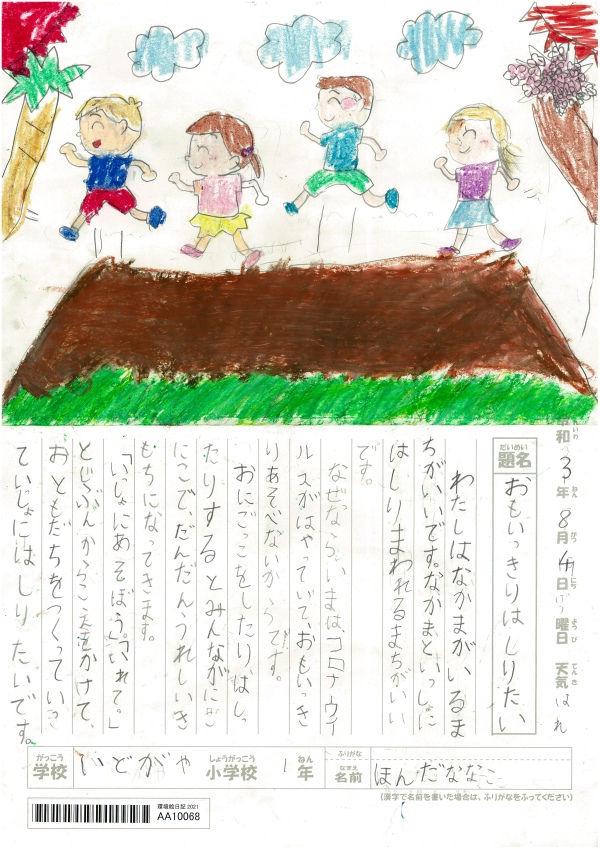 令和 3年 8月 日 げつ曜日 天気 はれ
だいめい
題名
おもいっきりはしりたい
わたしはなかまがいるま
ちがいいです。なかまといっしょに
はしりまわれるまちがいい
です。
なぜなら、いまは、コロナウイ
ルスがはやっていて、おもいっき
りあそべないからです。
おにごっこをしたり、はしっ
たりするとみんながにこ
にこで、だんだんうれしいき
もちになってきます。
「いっしょにあそぼう。」「いれて。」
とじぶんからこえをかけて、
おともだちをつくっていっき
ていっしょにはしりたいです。
がっこう
学校
いどがや
しょうがっこう
小学校
1
ねん
年
ふりがな
なまえ
名前
ほんだななこ
(漢字で名前を書いた場合は、ふりがなをふってください)
環境絵日記 2021
AA10068